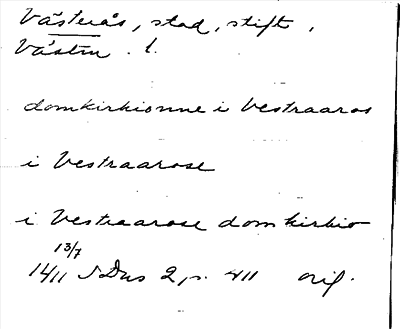 Västerås, stad, stift,
Västm. l.
domkirkionne i Vestraaros
i Vestraarose
i Vestraarose domkirkio
13/7
1411 SDns 2, s. 411 orig.